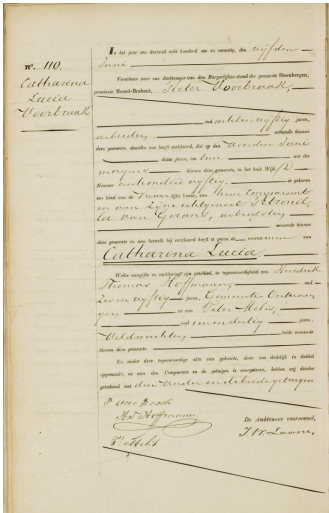 No. 110
Catharina
Lucia
Voorbraak
In het jaar een duizend acht honderd een en zeventig, den vijfden
Juni
Verscheen voor ons Ambtenaar van den Burgerlijken stand der gemeente Steenbergen,
provincie Noord-Brabant, Pieter Voorbraak,
oud acht en vijftig jaren,
arbeider wonende binnen
deze gemeente, dewelke ons heeft verklaard, dat op den
dezes jaars, ten twee ure des
morgens binnen deze gemeente, in het huis Wijk
Nummer een honderd vijftig, is geboren
een kind van de Vrouwelijke kunne, van hem Comparant
en van zijne echtgenoot Petronel
la van Gedons, arbeidster
wonende binnen
deze gemeente en aan hetwelk hij verklaard heeft te geven de voornamen van
Catharina Lucia.
Welke aangifte en verklaring zijn geschied, in tegenwoordigheid van Hendrik
Thomas Hoffmann, oud
Twee en vijftig jaren, Gemeente Ontvan
ger en van Pieter Melis,
oud een en dertig jaren,
Veldwachter, beide wonende
binnen deze gemeente
En onder deze tegenwoordige akte van geboorte, door ons dadelijk in dubbel
opgemaakt, en aan den Comparant en de getuigen is voorgelezen, hebben wij dezelve
geteekend met den Vader en de beide getuigen
H. T. Hoffmann
De Ambtenaar voornoemd,